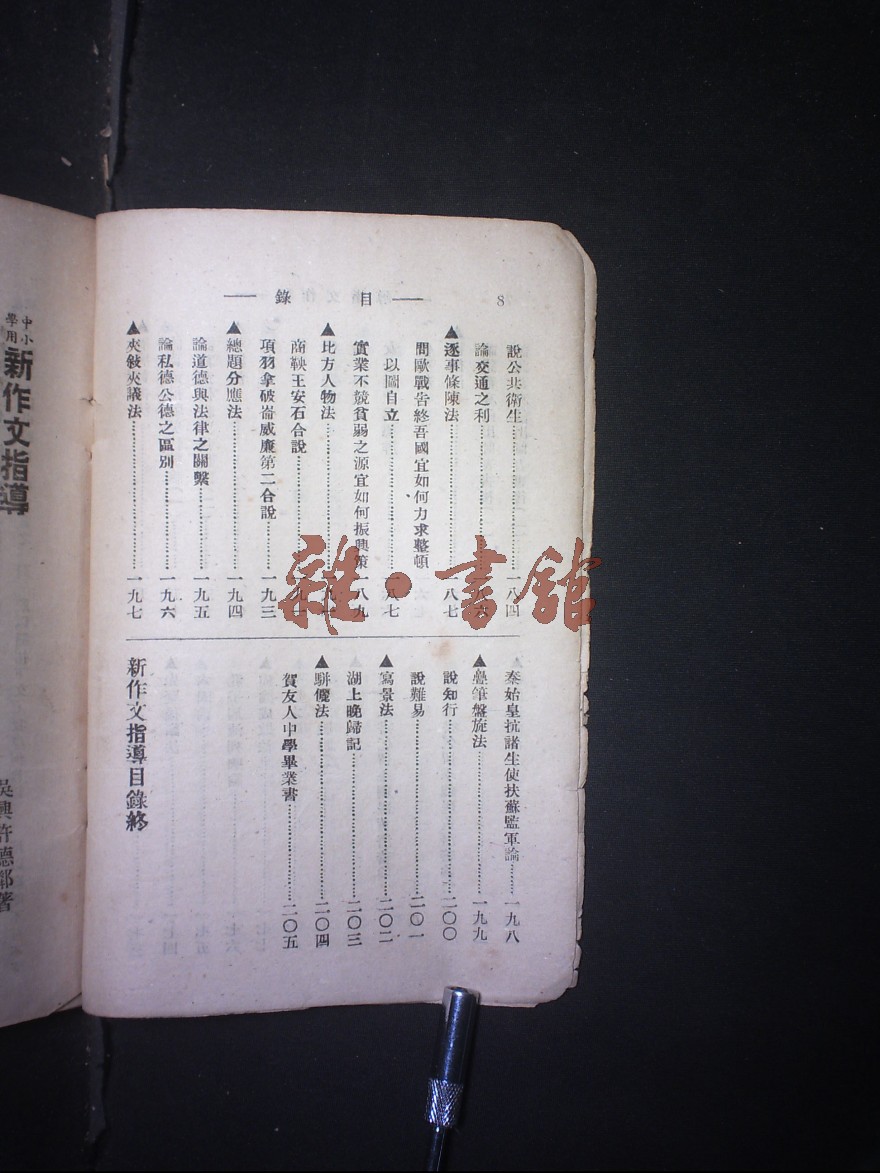 8 — 目錄 —
說公共衛生………一八四
論交通之利………
▲逐事條陳法………一八七
問歐戰告終吾國宜如何力求整頓
以圖自立………一八七
實業不競貧弱之源宜如何振興策 一八九
▲比方人物法………
商鞅王安石合說………
項羽拿破崙威廉第二合說………一九三
▲總題分應法………一九四
論道德與法律之關繫………一九五
論私德公德之區別………一九六
▲夾敍夾議法………一九七
秦始皇抗諸生使扶蘇監軍論………一九八
▲疊筆盤旋法………一九九
說知行………二〇〇
說難易………二〇一
▲寫景法………二〇二
湖上晚歸記………二〇三
▲駢儷法………二〇四
賀友人中學畢業書………二〇五
新作文指導目錄終
中小學用 新作文指導
吳興許德鄰著
雜·書館